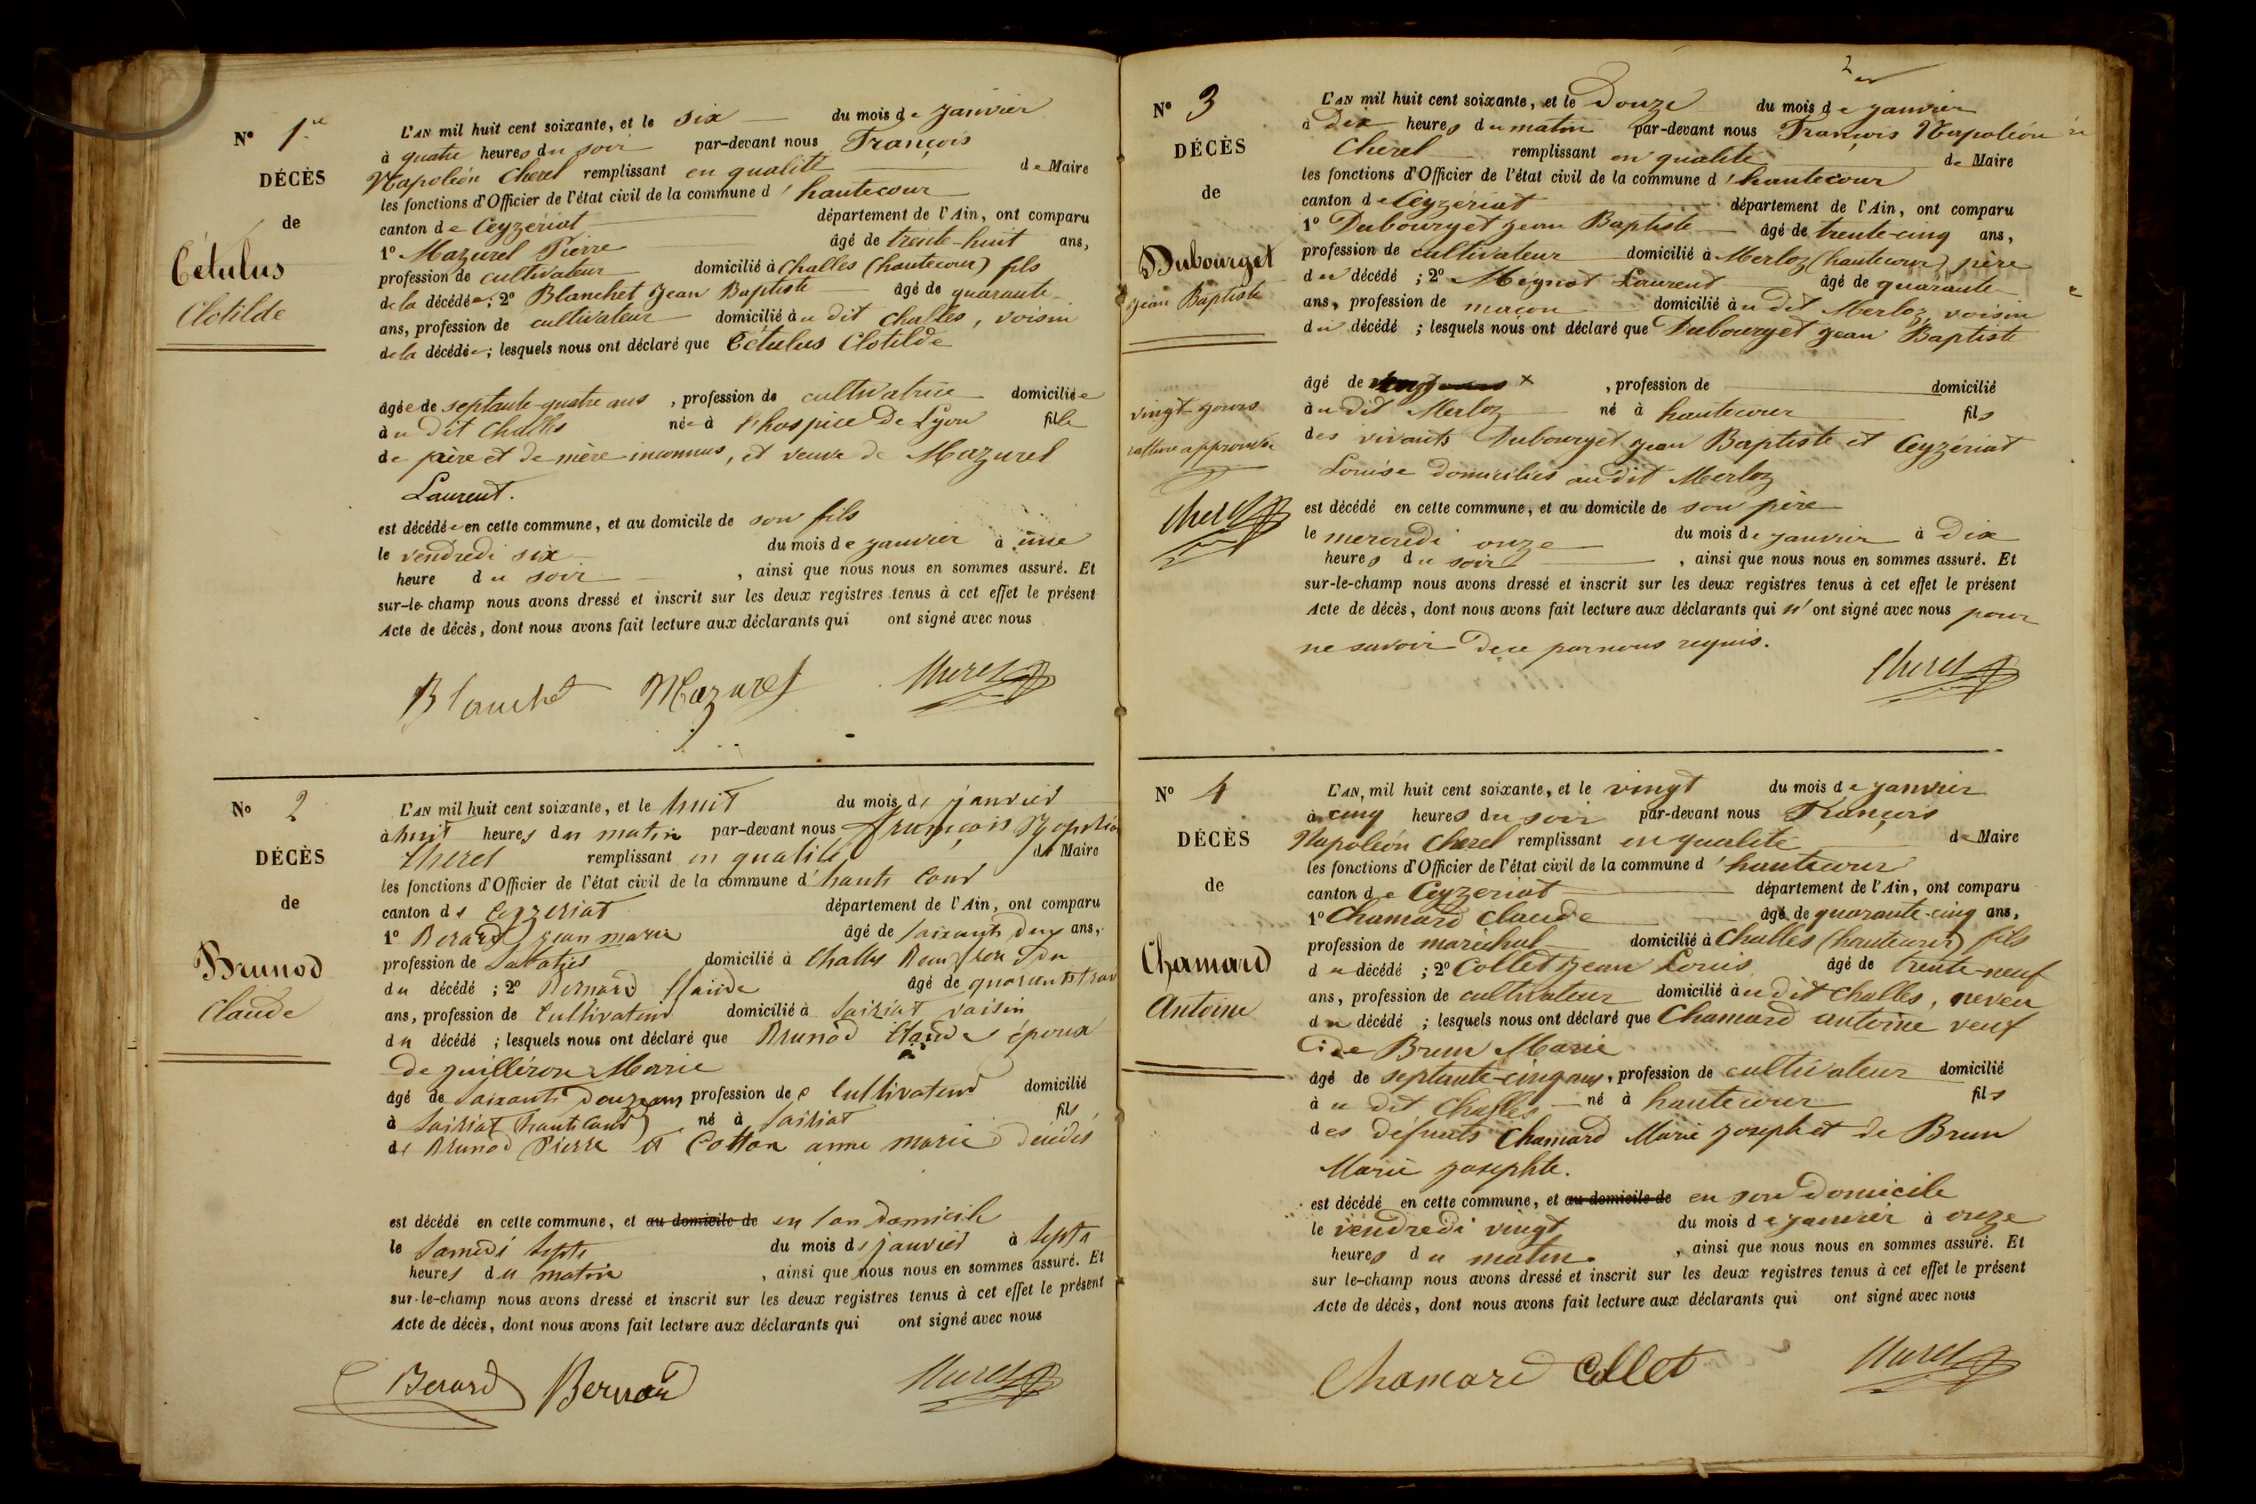 N° 1er
DÉCÈS
de
Cétulus
Clotilde
L'AN mil huit cent soixante, et le six du mois de janvier
à quatre heures du soir par-devant nous François
Napoléon Cherel remplissant en qualité de Maire
les fonctions d'Officier de l'état civil de la commune d'hautecour
canton de Ceyzériat département de l'Ain, ont comparu
1° Mazurel Pierre âgé de trente-huit ans,
profession de cultivateur domicilié à Challes (hautecour) fils
de la décédée; 2° Blanchet Jean Baptiste âgé de quarante
ans, profession de cultivateur domicilié au dit Challes, voisin
de la décédée; lesquels nous ont déclaré que Cétulus Clotilde
âgée de septante-quatre ans, profession de cultivatrice domiciliée
au dit Challes née à l'hospice de Lyon fille
de père et de mère inconnus, et veuve de Mazurel
Laurent.
est décédée en cette commune, et au domicile de son fils
le vendredi six du mois de janvier à une
heure du soir, ainsi que nous nous en sommes assuré. Et
sur-le-champ nous avons dressé et inscrit sur les deux registres tenus à cet effet le présent
Acte de décès, dont nous avons fait lecture aux déclarants qui ont signé avec nous
Blanchet Mazurel Cherel
N° 2
DÉCÈS
de
Brunod
Claude
L'AN mil huit cent soixante, et le huit du mois de janvier
à huit heures du matin par-devant nous françois Napoléon
Cherel remplissant en qualité de Maire
les fonctions d'Officier de l'état civil de la commune d'haute Cour
canton de Ceyzeriat département de l'Ain, ont comparu
1° Berard jean marie âgé de soixante deux ans,
profession de domicilié à Challes
du décédé; 2° Bernard Claude âgé de quarante trois
ans, profession de Cultivateur domicilié à voisin
du décédé; lesquels nous ont déclaré que Brunod Claude époux
de guilléron Marie
âgé de soixante douze ans profession de Cultivateur domicilié
à (hautecour) né à fils
de Brunod Pierre et Cotton anne marie décédés
est décédé en cette commune, et au domicile de en son domicile
le Samedi Septe du mois de janvier à septe
heures du matin, ainsi que nous nous en sommes assuré. Et
sur-le-champ nous avons dressé et inscrit sur les deux registres tenus à cet effet le présent
Acte de décès, dont nous avons fait lecture aux déclarants qui ont signé avec nous
Berard Bernard Cherel
N° 3
DÉCÈS
de
Dubourget
Jean Baptiste
vingt jours
rature approuvée
Cherel
L'AN mil huit cent soixante, et le Douze du mois de janvier
à Dix heures du matin par-devant nous François Napoléon
Cherel remplissant en qualité de Maire
les fonctions d'Officier de l'état civil de la commune d'hautecour
canton de Ceyzériat département de l'Ain, ont comparu
1° Dubourget Jean Baptiste âgé de trente-cinq ans,
profession de cultivateur domicilié à Merloz (hautecour) père
du décédé; 2° Mégnot Laurent âgé de quarante
ans, profession de maçon domicilié au dit Merloz, voisin
du décédé; lesquels nous ont déclaré que Dubourget Jean Baptiste
âgé de ×, profession de domicilié
au dit Merloz né à hautecour fils
des vivants Dubourget Jean Baptiste et Ceyzériat
Louise domiciliés au dit Merloz
est décédé en cette commune, et au domicile de son père
le mercredi onze du mois de janvier à Dix
heures du soir, ainsi que nous nous en sommes assuré. Et
sur-le-champ nous avons dressé et inscrit sur les deux registres tenus à cet effet le présent
Acte de décès, dont nous avons fait lecture aux déclarants qui n'ont signé avec nous pour
ne savoir de ce par nous requis.
Cherel
N° 4
DÉCÈS
de
Chamard
Antoine
L'AN, mil huit cent soixante, et le vingt du mois de janvier
à cinq heures du soir par-devant nous François
Napoléon Cherel remplissant en qualité de Maire
les fonctions d'Officier de l'état civil de la commune d'hautecour
canton de Ceyzeriat département de l'Ain, ont comparu
1° Chamard Claude âgé de quarante-cinq ans,
profession de maréchal domicilié à Challes (hautecour) fils
du décédé; 2° Collet Jean Louis âgé de trente-neuf
ans, profession de cultivateur domicilié au dit Challes, neveu
du décédé; lesquels nous ont déclaré que Chamard antoine veuf
de Brun Marie
âgé de septante-cinq ans, profession de cultivateur domicilié
au dit Challes né à hautecour fils
des défunts Chamard Marie joseph et de Brun
Marie josephte.
est décédé en cette commune, et au domicile de en son domicile
le vendredi vingt du mois de janvier à onze
heures du matin, ainsi que nous nous en sommes assuré. Et
sur le-champ nous avons dressé et inscrit sur les deux registres tenus à cet effet le présent
Acte de décès, dont nous avons fait lecture aux déclarants qui ont signé avec nous
Chamard Collet Cherel